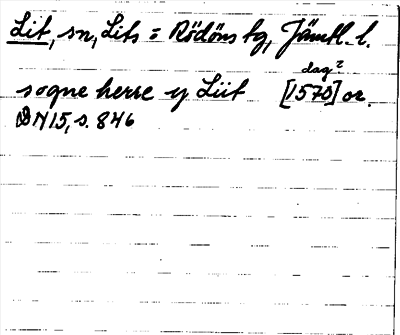 Lit, sn, Lits o Rödöns tg, Jämtl. l.
dag?
sogne herre y Liit [1570] or.
DN 15, s. 846